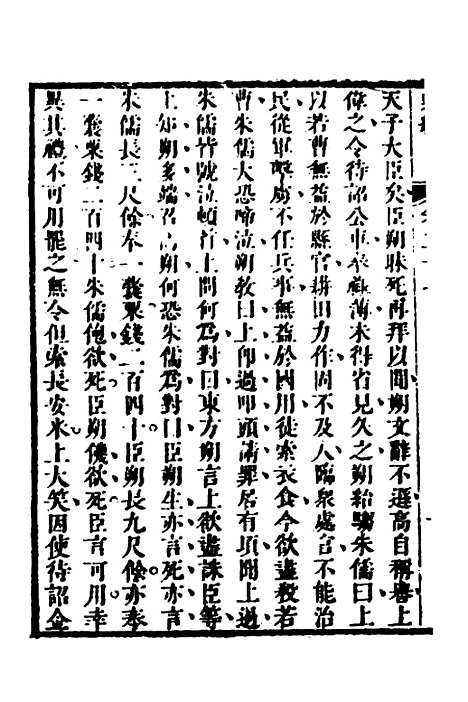 天子大臣矣臣朔昧死再拜以聞朔文辭不遜高自稱譽上
偉之令待詔公車奉祿薄未得省見久之朔紿騶朱儒曰上
以若曹無益於縣官耕田力作固不及人臨衆處官不能治
民從軍擊虜不任兵事無益於國用徒索衣食今欲盡殺若
曹朱儒大恐啼泣朔教曰上即過叩頭請罪居有頃聞上過
朱儒皆號泣頓首上問何爲對曰東方朔言上欲盡誅臣等
上知朔多端召問朔何恐朱儒爲對曰臣朔生亦言死亦言
朱儒長三尺餘奉一囊粟錢二百四十臣朔長九尺餘亦奉
一囊粟錢二百四十朱儒飽欲死臣朔饑欲死臣言可用幸
異其禮不可用罷之無令但索長安米上大笑因使待詔金